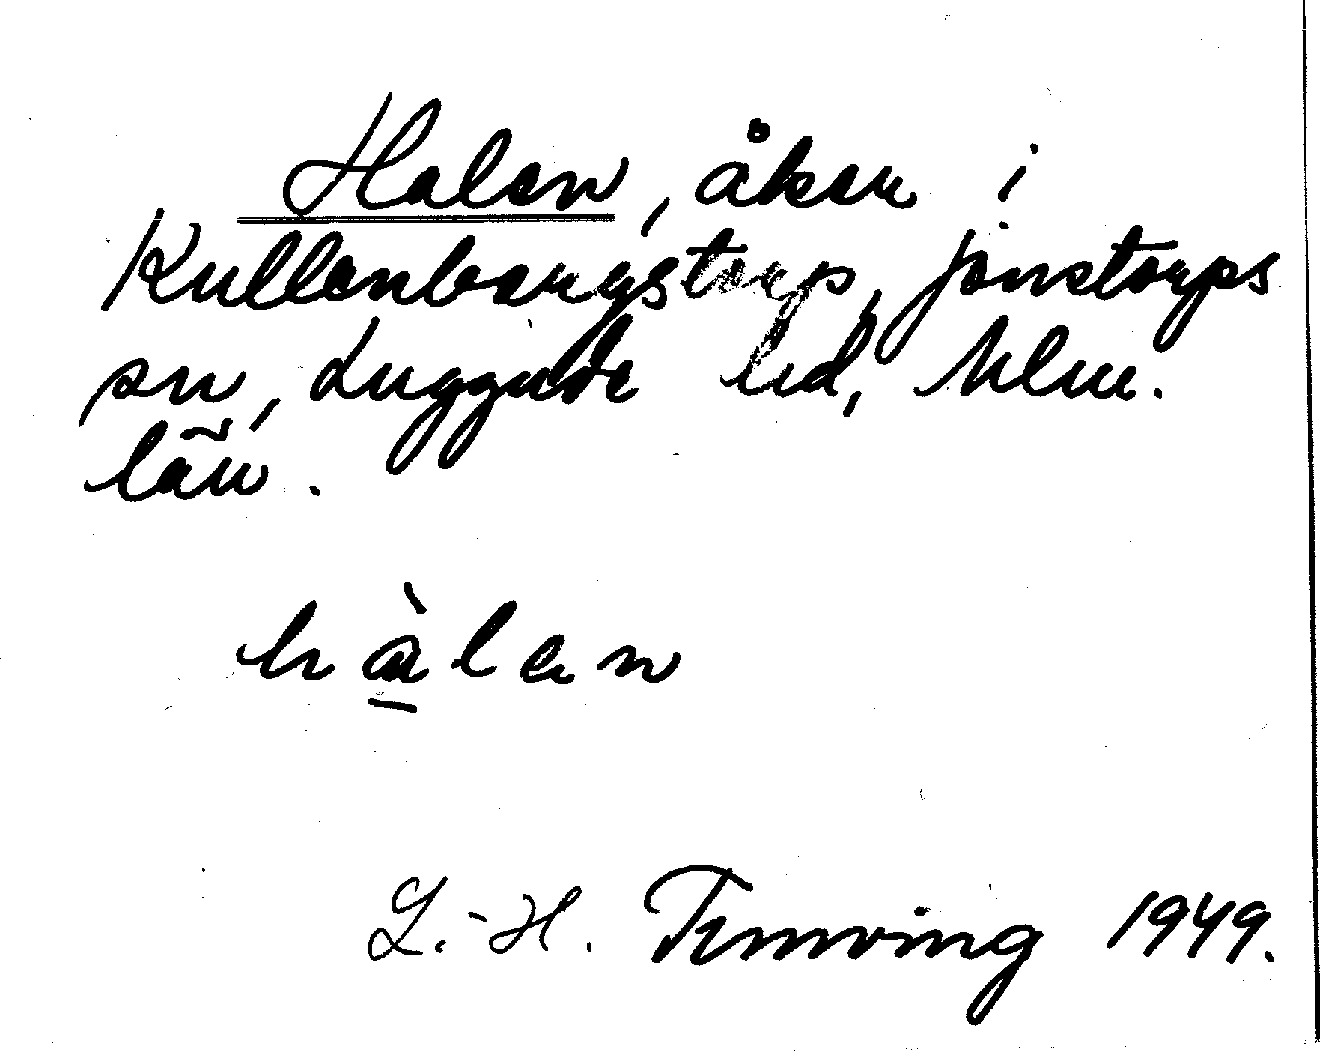 Halen, åker i
Kullenbergstorp, Jonstorps
sn, Luggude hd, Mlm.
län.
hàlen
L.-H. Ternving 1949.